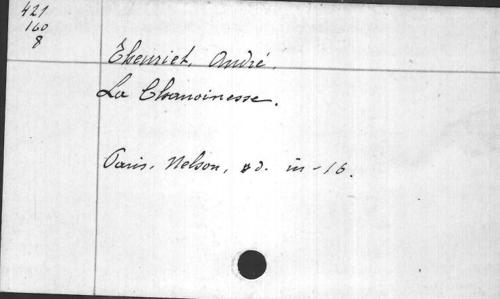 421
160
8
Theuriet, André.
La Chanoinesse.
Paris, Nelson, s d. in-16.